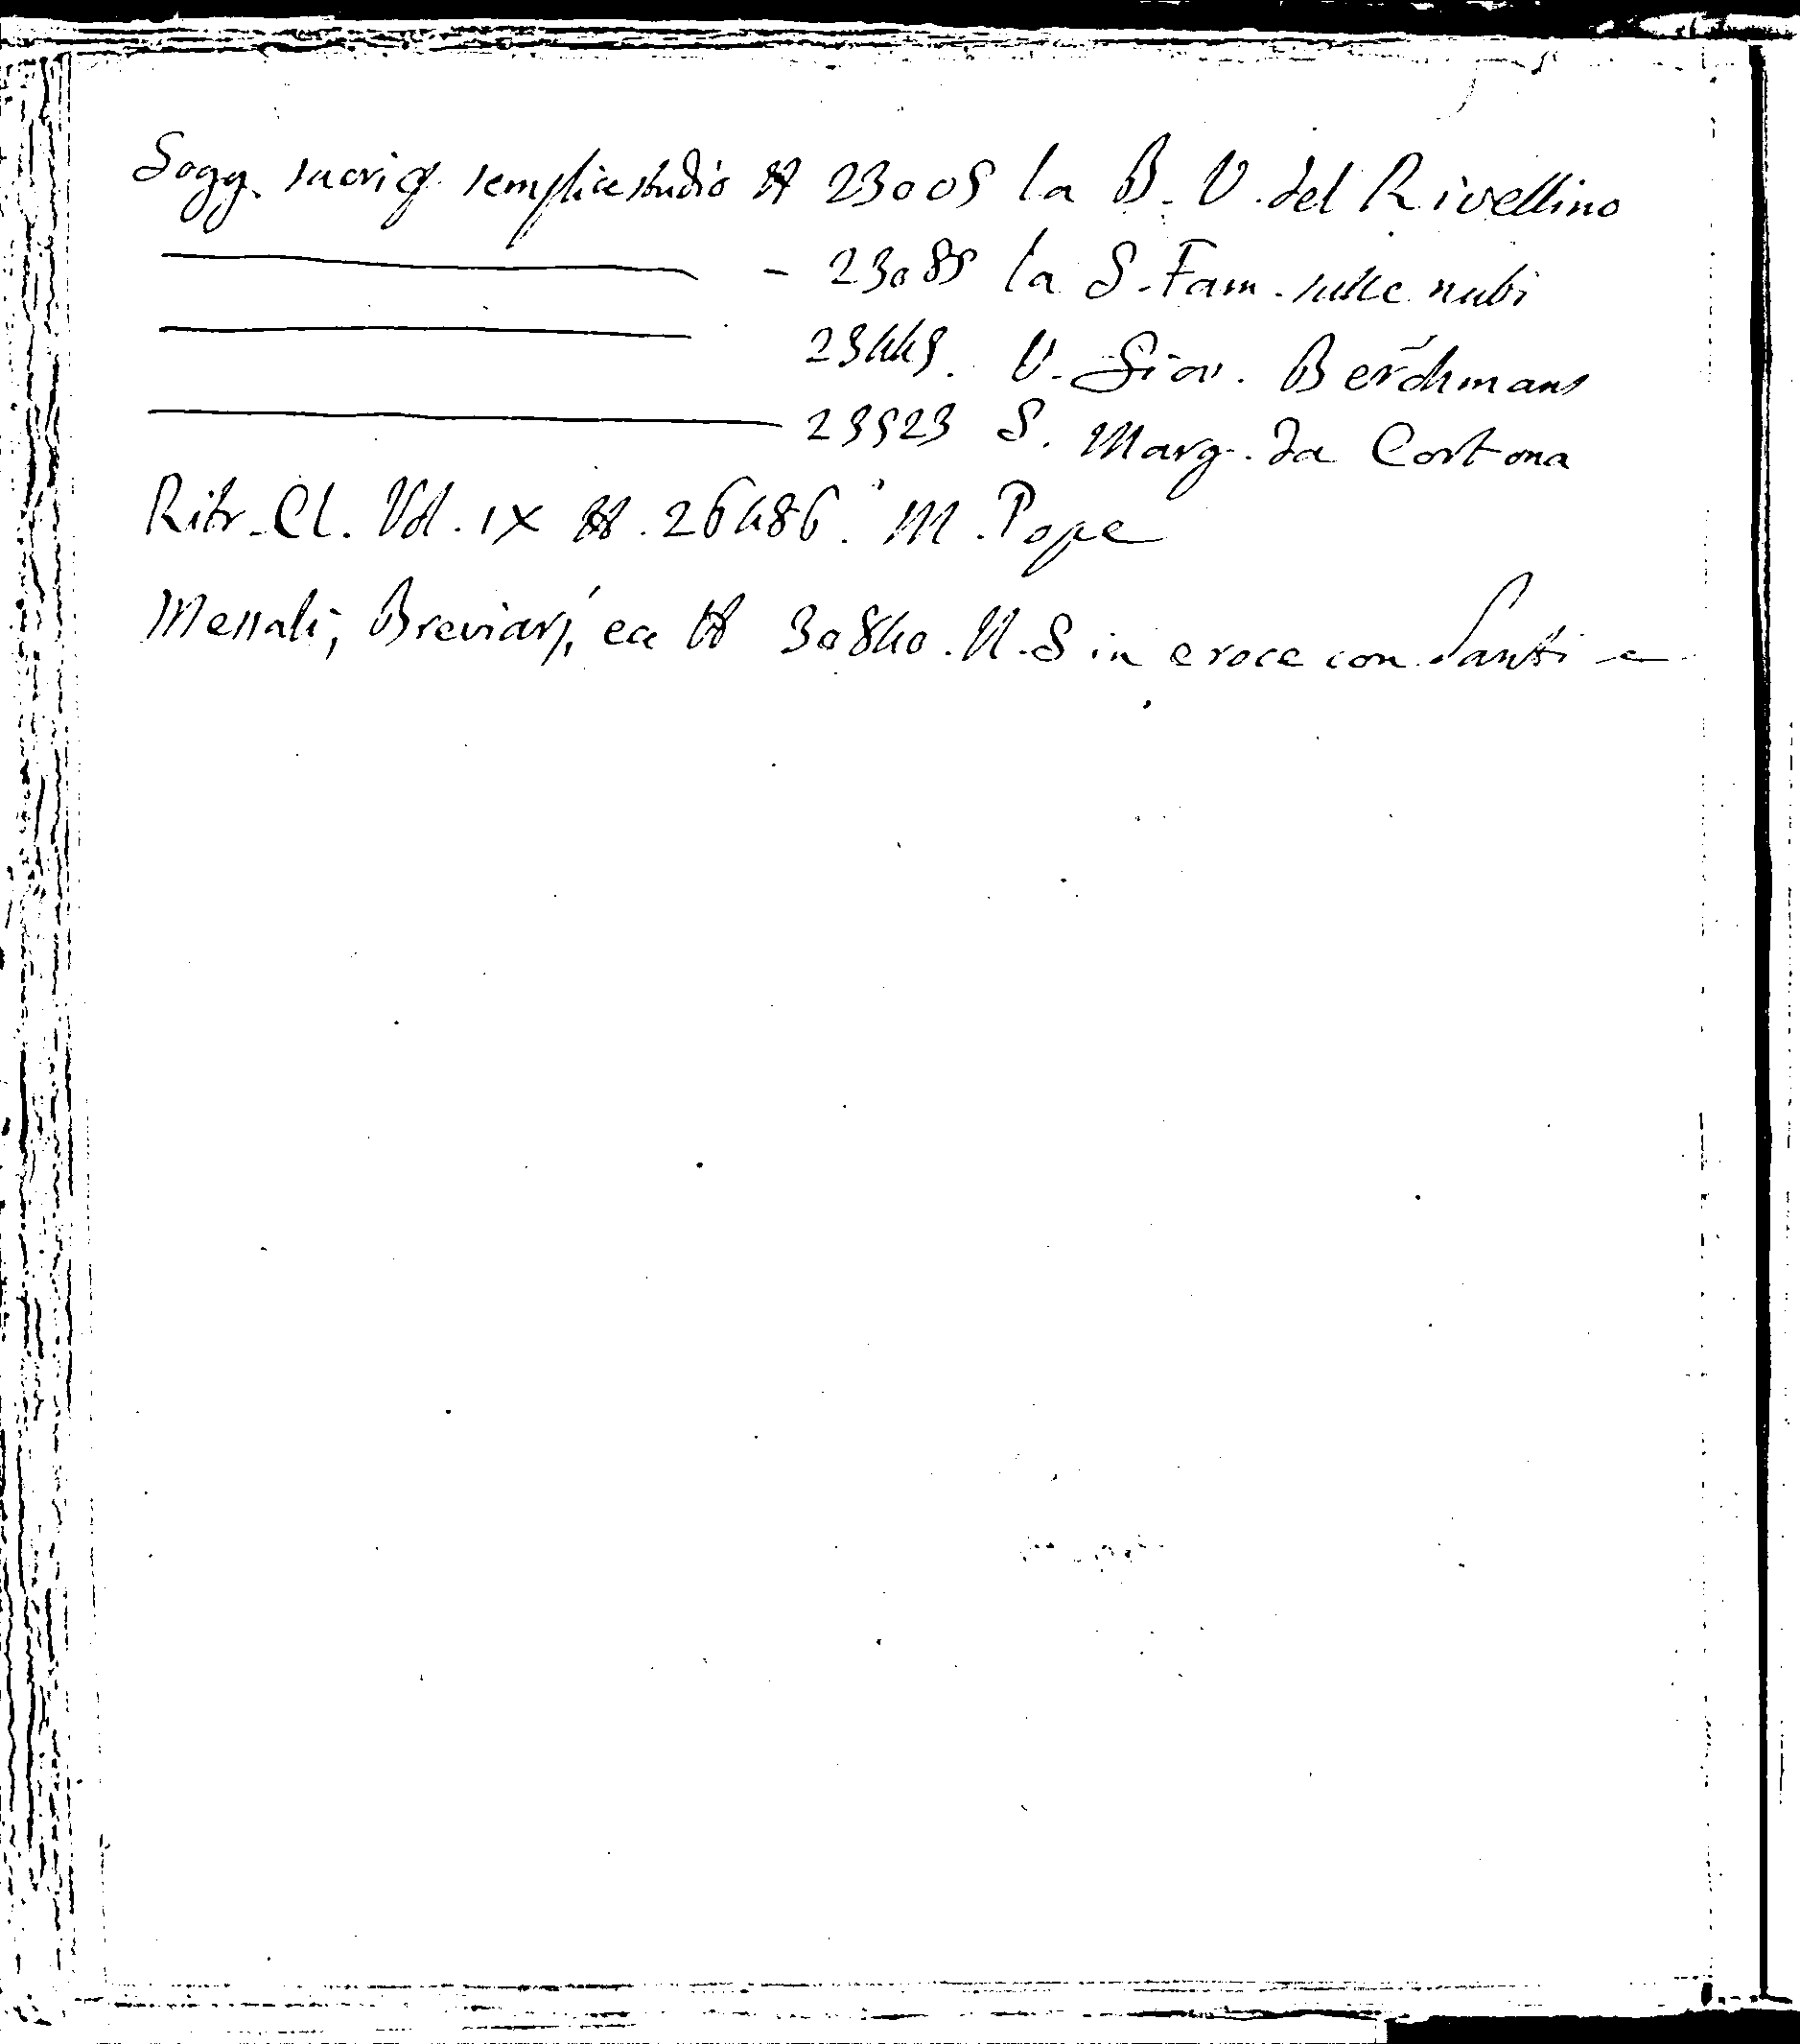 Sogg. sacri di semplice studio N 23005 la B. V. del Rivellino
- 23085 la S. Fam. sulle nubi
23445. V. Giov. Berchmans
23523 S. Marg. da Cortona
Ritr. Cl. Vol. IX N. 26486. M. Pope
Messali, Breviarj, ec N 30840. N. S in croce con Santi e